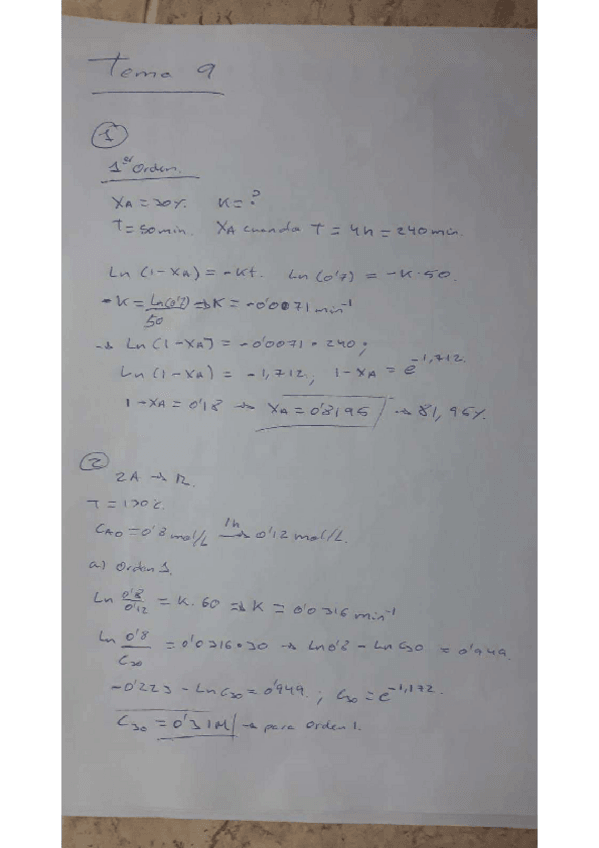 Tema 9
①
1er Orden.
XA = 30%. K = ?
T = 50 min. XA cuando T = 4h = 240 min.
Ln (1-XA) = -Kt. Ln (0'7) = -K·50.
-K = Ln(0'7)/50 => K = -0'0071 min⁻¹
→ Ln (1-XA) = -0'0071 · 240;
Ln (1-XA) = -1,712; 1-XA = e^-1,712.
1-XA = 0'18 → XA = 0'8195 → 81,95%.
②
2A → R.
T = 130°C.
CA0 = 0'8 mol/L 1h→ 0'12 mol/L.
a) Orden 1.
Ln 0'8/0'12 = K·60 => K = 0'0316 min⁻¹
Ln 0'8/C30 = 0'0316·30 → Ln 0'8 - Ln C30 = 0'949.
-0'223 - Ln C30 = 0'949.; C30 = e^-1,172.
C30 = 0'31M → para Orden 1.